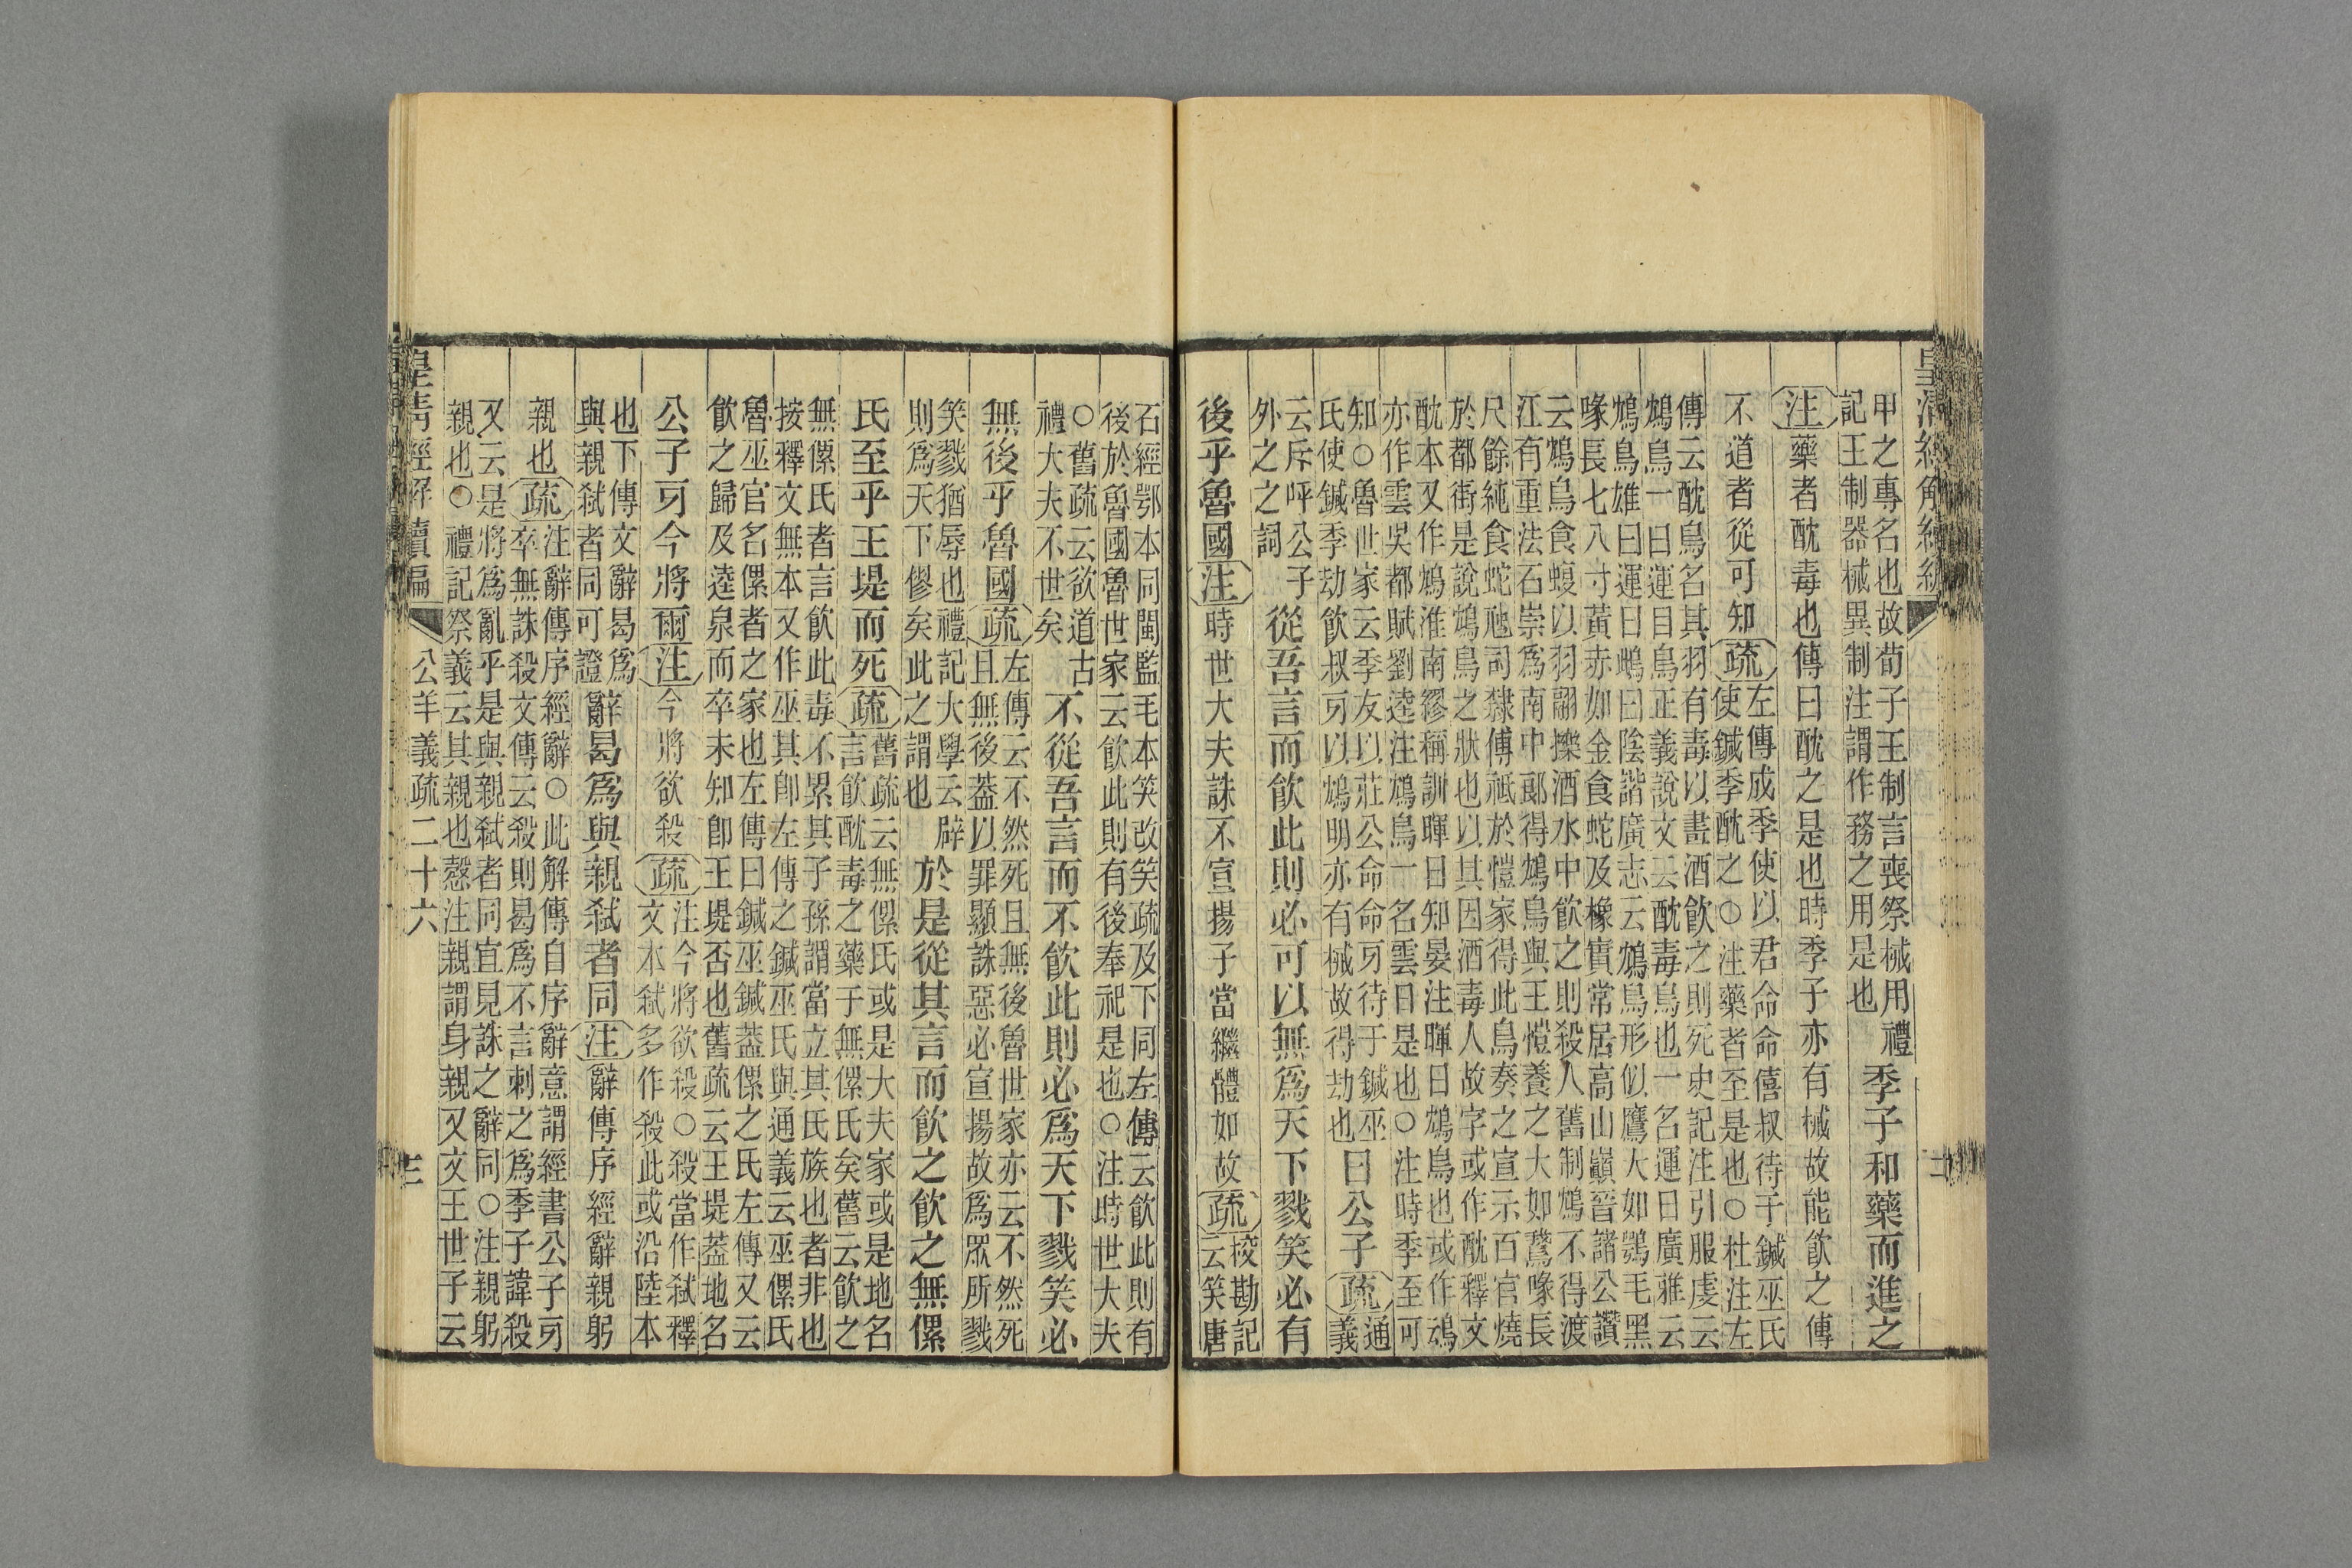 甲之專名也故荀子王制言喪祭械用禮
記王制器械異制注謂作務之用是也
季子和藥而進之
注藥者酖毒也傳曰酖之是也時季子亦有械故能飲之傳
不道者從可知疏
左傳成季使以君命命僖叔待于鍼巫氏
使鍼季酖之○注藥者至是也○杜注左
傳云酖鳥名其羽有毒以畫酒飲之則死史記注引服虔云
鴆鳥一曰運日鳥正義說文云酖毒鳥也一名運日廣雅云
鴆鳥雄曰運日雌曰陰諧廣志云鴆鳥形似鷹大如鶚毛黑
喙長七八寸黃赤如金食蛇及橡實常居高山巔晉諸公讚
云鴆鳥食蝮以羽翮擽酒水中飲之則殺人舊制鴆不得渡
江有重法石崇爲南中郎得鴆鳥與王愷養之大如鵞喙長
尺餘純食蛇虺司隸傅祗於愷家得此鳥奏之宣示百官燒
於都街是說鴆鳥之狀也以其因酒毒人故字或作酖釋文
酖本又作鴆淮南繆稱訓暉日知晏注暉日鴆鳥也或作䲰
亦作雲吳都賦劉逵注鴆鳥一名雲日是也○注時季至可
知○魯世家云季友以莊公命命牙待于鍼巫
氏使鍼季劫飲叔牙以鴆明亦有械故得劫也
曰公子疏
通
義
云斥呼公子
外之之詞
從吾言而飲此則必可以無爲天下戮笑必有
後乎魯國注時世大夫誅不宣揚子當繼體如故疏
校勘記
云笑唐
石經鄂本同閩監毛本笑改笑疏及下同左傳云飲此則有
後於魯國魯世家云飲此則有後奉祀是也○注時世大夫
○舊疏云欲道古
禮大夫不世矣
不從吾言而不飲此則必爲天下戮笑必
無後乎魯國疏
左傳云不然死且無後魯世家亦云不然死
且無後蓋以罪顯誅惡必宣揚故爲眾所戮
笑戮猶辱也禮記大學云辟
則爲天下僇矣此之謂也
於是從其言而飲之飲之無傫
氏至乎王堤而死疏
舊疏云無傫氏或是大夫家或是地名
言飲酖毒之藥于無傫氏矣舊云飲之
無傫氏者言飲此毒不累其子孫謂當立其氏族也者非也
按釋文無本又作巫其卽左傳之鍼巫氏與通義云巫傫氏
魯巫官名傫者之家也左傳曰鍼巫鍼蓋傫之氏左傳又云
飲之歸及逵泉而卒未知卽王堤否也舊疏云王堤蓋地名
公子牙今將爾注今將欲殺疏
注今將欲殺○殺當作弒釋
文本弒多作殺此或沿陸本
也下傳文辭曷爲
與親弒者同可證
辭曷爲與親弒者同注辭傳序經辭親躬
親也疏
注辭傳序經辭○此解傳自序辭意謂經書公子牙
卒無誅殺文傳云殺則曷爲不言刺之爲季子諱殺
又云是將爲亂乎是與親弒者同宜見誅之辭同○注親躬
親也○禮記祭義云其親也愨注親謂身親又文王世子云
皇清經解續編
公羊義疏二十六
三